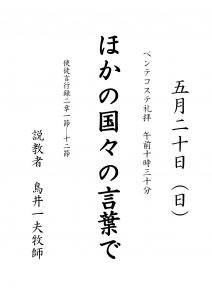 五月二十日（日）
ペンテコステ礼拝　午前十時三十分
ほかの国々の言葉で
使徒言行録二章一節―十二節
説教者　鳥井一夫牧師